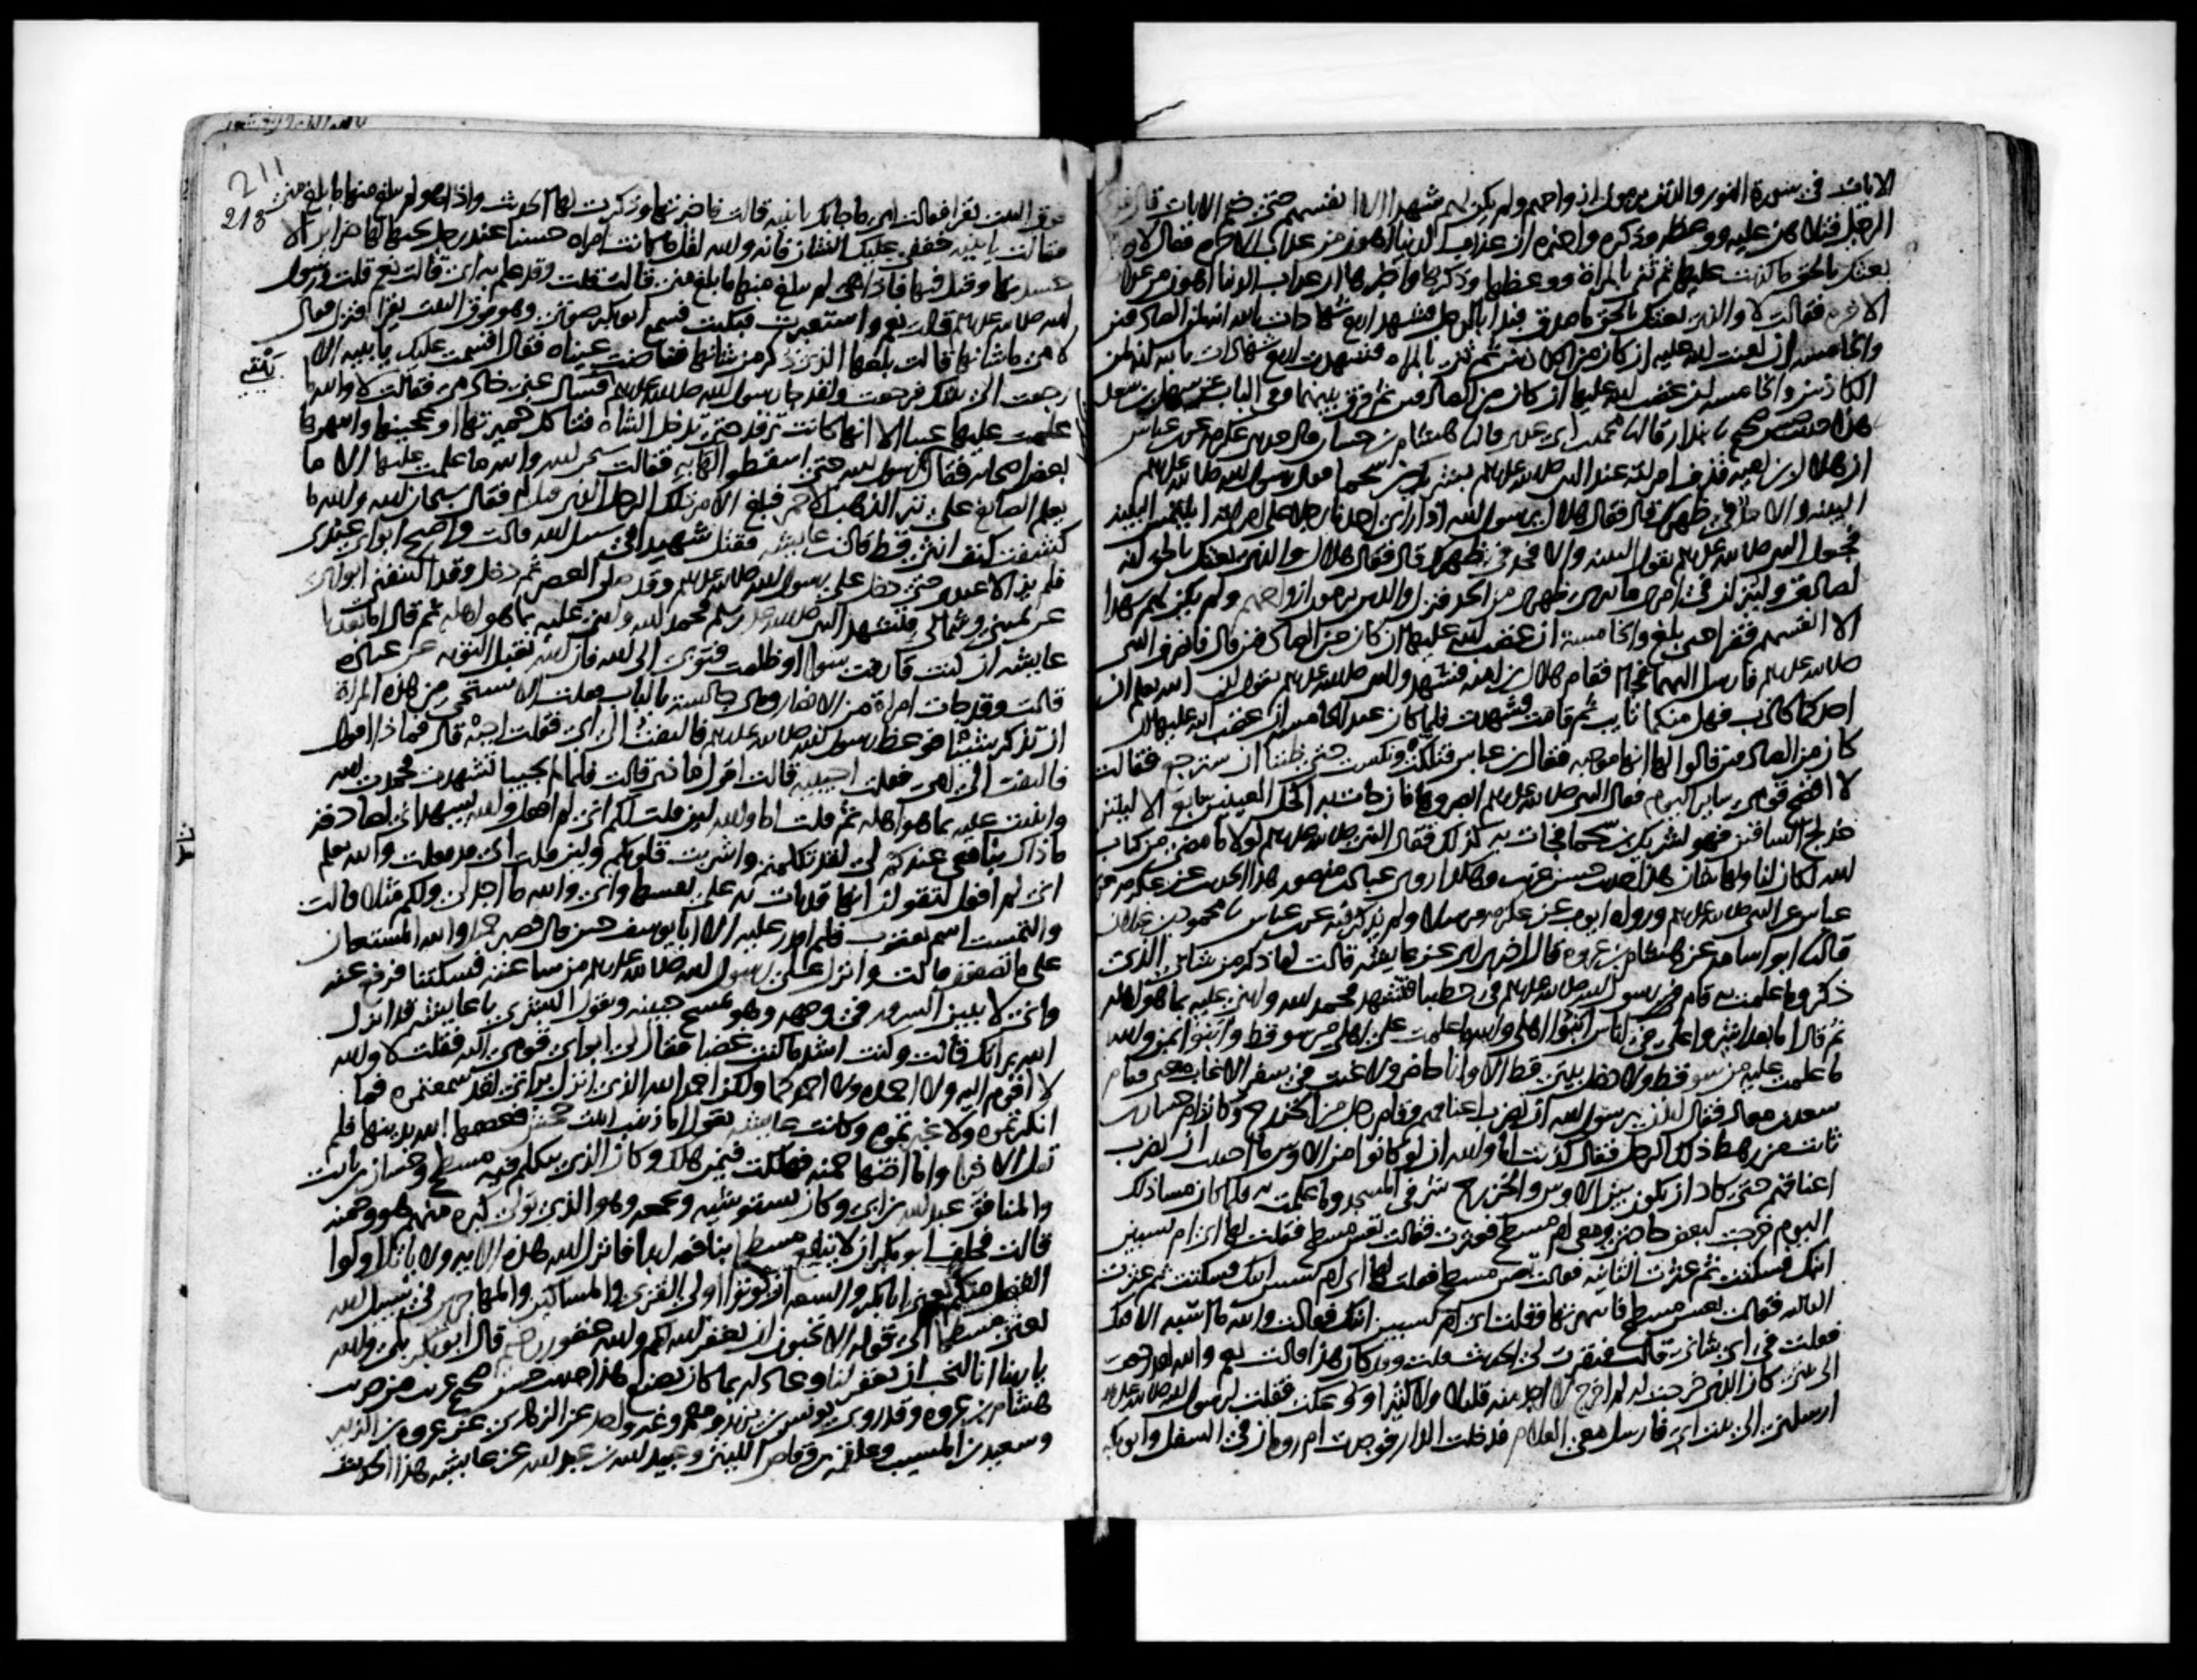 الايات في سورة النور والذين يرمون ازواجهم ولم يكن لهم شهدا الا انفسهم حتى ختم الايات قال فدعا
الرجل فتلاهن عليه ووعظه وذكره واخبره ان عذاب الدنيا اهون من عذاب الاخرة فقال لا والذي
بعثك بالحق ما كذبت عليها ثم ثنى بالمراة ووعظها وذكرها واخبرها ان عذاب الدنيا اهون من عذاب
الاخرة فقالت لا والذي بعثك بالحق ما صدق فبدا بالرجل فشهد اربع شهادات بالله انه لمن الصادقين
والخامسة ان لعنت الله عليه ان كان من الكاذبين ثم ثنى بالمراة فشهدت اربع شهادات بالله انه لمن
الكاذبين والخامسة ان غضب الله عليها ان كان من الصادقين ثم فرق بينهما وفي الباب عن سهل بن سعد
هذا حديث حسن صحيح نا بندار قال نا محمد بن ابي عدي قال نا هشام بن حسان قال حدثني عكرمة عن ابن عباس
ان هلال بن امية قذف امراته عند النبي صلى الله عليه وسلم بشريك بن سحما فقال رسول الله صلى الله عليه وسلم
البينة والا حد في ظهرك قال فقال هلال يا رسول الله اذا راى احدنا رجلا على امراته ايلتمس البينة
فجعل النبي صلى الله عليه وسلم يقول البينة والا فحد في ظهرك قال فقال هلال والذي بعثك بالحق انه
لصادق ولينزلن في امري ما يبرئ ظهري من الحد فنزل والذين يرمون ازواجهم ولم يكن لهم شهدا
الا انفسهم فقرا حتى بلغ والخامسة ان غضب الله عليها ان كان من الصادقين قال فانصرف النبي
صلى الله عليه وسلم فارسل اليهما فجاا فقام هلال بن امية فشهد والنبي صلى الله عليه وسلم يقول ان الله يعلم ان
احدكما كاذب فهل منكما تايب ثم قامت فشهدت فلما كان عند الخامسة ان غضب الله عليها ان
كان من الصادقين قالوا لها انها موجبة فقال ابن عباس فتلكت ونكست حتى ظننا ان سترجع فقالت
لا افضح قومي ساير اليوم فقال النبي صلى الله عليه وسلم ابصروها فان جات به اكحل العينين سابغ الاليتين
خدلج الساقين فهو لشريك بن سحما فجات به كذلك فقال النبي صلى الله عليه وسلم لولا ما مضى من كتاب
الله لكان لنا ولها شان هذا حديث حسن غريب وهكذا روى عباد بن منصور هذا الحديث عن عكرمة عن ابن
عباس عن النبي صلى الله عليه وسلم ورواه ايوب عن عكرمة مرسلا ولم يذكر فيه عن ابن عباس نا محمود بن غيلان
قال نا ابو اسامة عن هشام بن عروة قال اخبرني ابي عن عايشة قالت لما ذكر من شاني الذي
ذكر وما علمت به قام رسول الله صلى الله عليه وسلم في خطيبا فتشهد فحمد الله واثنى عليه بما هو اهله
ثم قال اما بعد اشيروا علي في اناس ابنوا اهلي والله ما علمت على اهلي من سو قط وابنوا بمن والله
ما علمت عليه من سو قط ولا دخل بيتي قط الا وانا حاضر ولا غبت في سفر الا غاب معي فقام
سعد بن معاذ فقال ايذن لي يا رسول الله ان نضرب اعناقهم وقام رجل من الخزرج وكانت ام حسان بن
ثابت من رهط ذلك الرجل فقال كذبت اما والله ان لو كانوا من الاوس ما احببت ان تضرب
اعناقهم حتى كاد ان يكون بين الاوس والخزرج شر في المسجد وما علمت به فلما كان مسا ذلك
اليوم خرجت لبعض حاجتي ومعي ام مسطح فعثرت فقالت تعس مسطح فقلت لها اي ام تسبين
ابنك فسكتت ثم عثرت الثانية فقالت تعس مسطح فقلت لها اي ام تسبين ابنك فسكتت ثم عثرت
الثالثة فقالت تعس مسطح فانتهرتها فقلت اي ام تسبين ابنك فقالت والله ما اسبه الا فيك
فقلت في اي شاني قالت فبقرت لي الحديث قلت وقد كان هذا قالت نعم والله لقد رجعت
الى بيتي كان الذي خرجت له لم اخرج لا اجد منه قليلا ولا كثيرا ووعكت فقلت لرسول الله صلى الله عليه وسلم
ارسلني الى بيت ابي فارسل معي الغلام فدخلت الدار فوجدت ام رومان في السفل وابو بكر
211
213
فوق البيت يقرا فقالت امي ما جا بك يا بنية قالت فاخبرتها وذكرت لها الحديث واذا هو لم يبلغ منها ما بلغ مني
فقالت يا بنية خففي عليك الشان فانه والله لقل ما كانت امراة حسنا عند رجل يحبها لها ضراير الا
حسدنها وقيل فيها فاذا هي لم يبلغ منها ما بلغ مني قالت قلت وقد علم به ابي قالت نعم قلت ورسول
الله صلى الله عليه وسلم قالت نعم واستعبرت فبكيت فسمع ابو بكر صوتي وهو فوق البيت يقرا فنزل فقال
لامي ما شانها قالت بلغها الذي ذكر من شانها ففاضت عيناه فقال اقسمت عليك يا بنية الا
رجعت الى بيتك فرجعت ولقد جا رسول الله صلى الله عليه وسلم فسال عني خادمي فقالت لا والله ما
علمت عليها عيبا الا انها كانت ترقد حتى تدخل الشاة فتاكل خميرتها او عجينها وانتهرها
بعض اصحابه فقال رسول الله حتى اسقطوا لها به فقالت سبحان الله والله ما علمت عليها الا ما
يعلم الصايغ على تبر الذهب الاحمر فبلغ الامر ذلك الرجل الذي قيل له فقال سبحان الله والله ما
كشفت كنف انثى قط قالت عايشة فقتل شهيدا في سبيل الله قالت واصبح ابواي عندي
فلم يزالا عندي حتى دخل علي رسول الله صلى الله عليه وسلم وقد صلى العصر ثم دخل وقد اكتنفني ابواي
عن يميني وعن شمالي فتشهد النبي صلى الله عليه وسلم فحمد الله واثنى عليه بما هو اهله ثم قال اما بعد يا
عايشة ان كنت قارفت سوا او ظلمت فتوبي الى الله فان الله يقبل التوبة عن عباده
قالت وقد جات امراة من الانصار وهي جالسة بالباب فقلت الا تستحي من هذه المراة
ان تذكر شيئا فوعظ رسول الله صلى الله عليه وسلم فالتفت الى ابي فقلت اجبه قال فماذا اقول
فالتفت الى امي فقلت اجيبيه قالت اقول ماذا قالت فلما لم يجيبا تشهدت فحمدت الله
واثنيت عليه بما هو اهله ثم قلت اما والله لين قلت لكم اني لم افعل والله يشهد اني لصادقة
ما ذاك بنافعي عندكم لي لقد تكلمتم واشربت قلوبكم ولين قلت اني قد فعلت والله يعلم
اني لم افعل لتقولن انها قد بات به على نفسها واني والله ما اجد لي ولكم مثلا قالت
والتمست اسم يعقوب فلم اقدر عليه الا ابا يوسف حين قال فصبر جميل والله المستعان
على ما تصفون قالت وانزل على رسول الله صلى الله عليه وسلم من ساعته فسكتنا فرفع عنه
واني لاتبين السرور في وجهه وهو يمسح جبينه ويقول ابشري يا عايشة قد انزل
الله براتك قالت وكنت اشد ما كنت غضبا فقال لي ابواي قومي اليه فقلت لا والله
لا اقوم اليه ولا احمده ولا احمدكما ولكن احمد الله الذي انزل براتي لقد سمعتموه فما
انكرتموه ولا غيرتموه وكانت عايشة تقول اما زينب بنت جحش فعصمها الله بدينها فلم
تقل الا خيرا واما اختها حمنة فهلكت فيمن هلك وكان الذي يتكلم فيه مسطح وحسان بن ثابت
والمنافق عبد الله بن ابي وكان يستوشيه ويجمعه وهو الذي تولى كبره منهم هو وحمنة
قالت فحلف ابو بكر ان لا ينفع مسطحا بنافعة ابدا فانزل الله هذه الاية ولا ياتل اولوا
الفضل منكم يعني ابا بكر والسعة ان يوتوا اولي القربى والمساكين والمهاجرين في سبيل الله
يعني مسطحا الى قوله الا تحبون ان يغفر الله لكم والله غفور رحيم قال ابو بكر بلى والله
يا ربنا انا لنحب ان تغفر لنا وعاد له بما كان يصنع هذا حديث حسن صحيح غريب من حديث
هشام بن عروة وقد روى يونس بن يزيد ومعمر وغير واحد عن الزهري عن عروة بن الزبير
وسعيد بن المسيب وعلقمة بن وقاص الليثي وعبيد الله بن عبد الله عن عايشة هذا الحديث